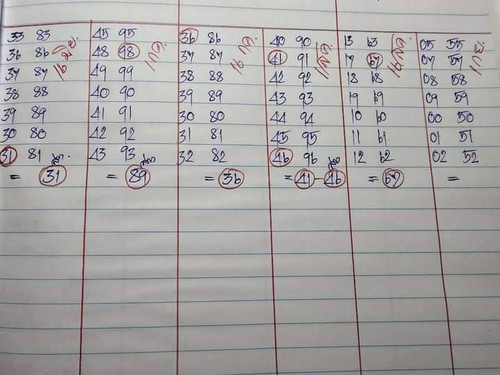 33 83
36 86
37 87
38 88
39 89
30 80
31 81
= 31
16 มิ.ย.
45 95
48 98
49 99
40 90
41 91
42 92
43 93
= 89
1 ก.ค.
36 86
37 87
38 88
39 89
30 80
31 81
32 82
= 36
16 ก.ค.
40 90
41 91
42 92
43 93
44 94
45 95
46 96
= 41 - 46
1 ส.ค.
13 63
17 67
18 68
19 69
10 60
11 61
12 62
=
16 ส.ค.
05 55
07 57
08 58
09 59
00 50
01 51
02 52
=
1 ก.ย.